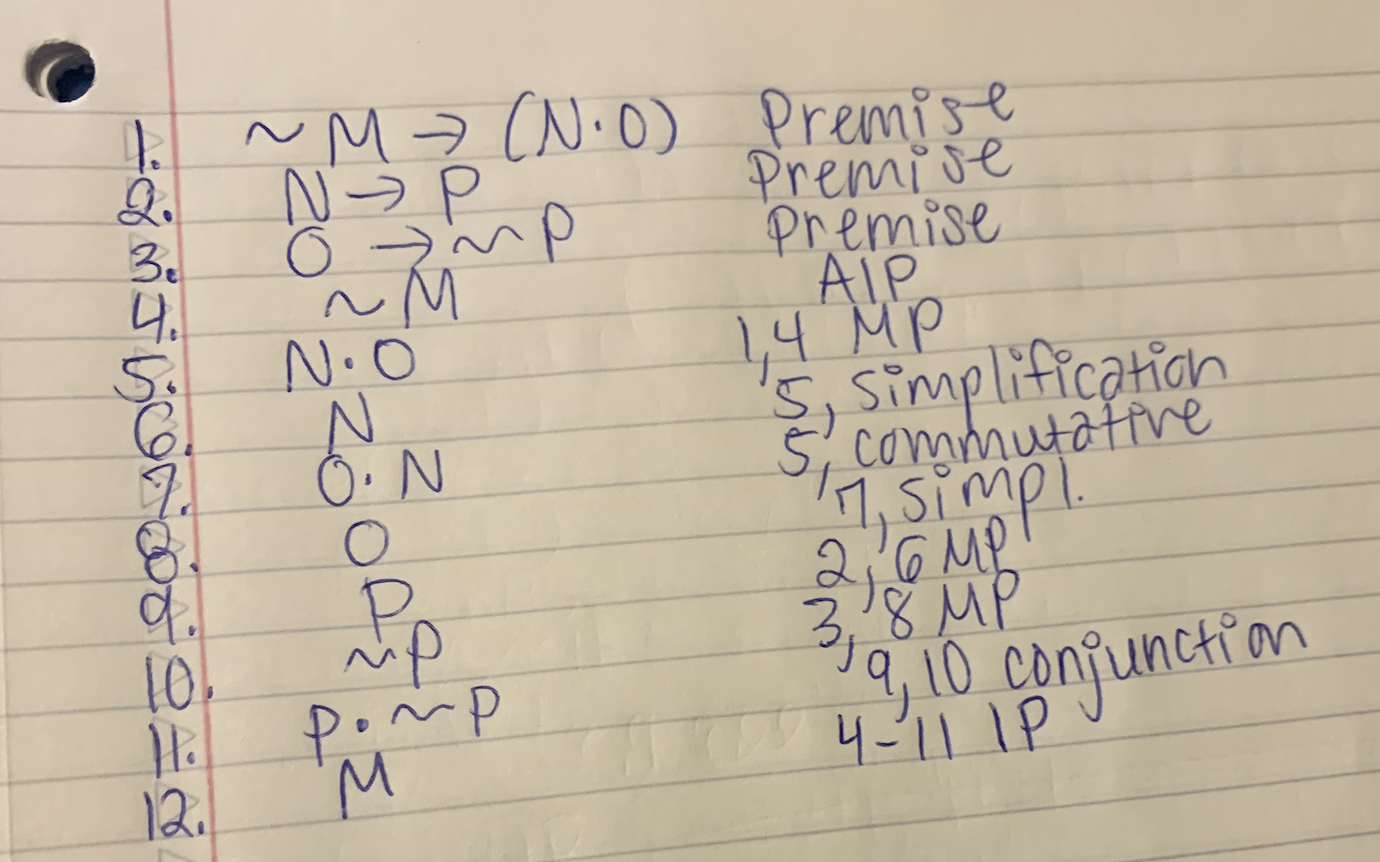 1. ~M → (N·O) Premise
2. N → P Premise
3. O → ~P Premise
4. ~M AIP
5. N·O 1,4 MP
6. N 5, simplification
7. O·N 5, commutative
8. O 7, simpl.
9. P 2, 6 MP
10. ~P 3, 8 MP
11. P·~P 9, 10 conjunction
12. M 4-11 IP